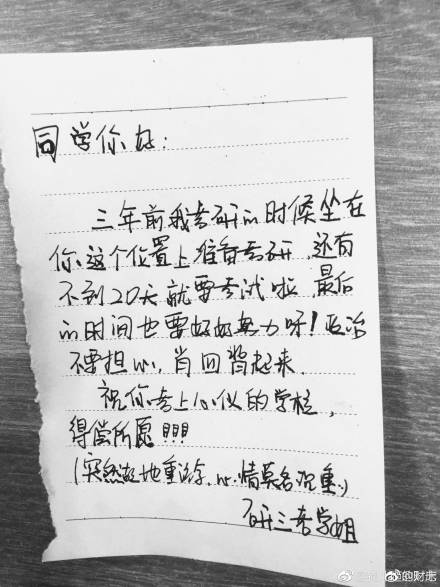 同学你好：
三年前我考研的时候坐在
你这个位置上准备考研，还有
不到20天就要考试啦，最后
的时间也要好好努力呀！政治
不要担心，肖四背起来
祝你考上心仪的学校，
得偿所愿!!!
(突然故地重游，心情莫名沉重)
研三老学姐
的财神